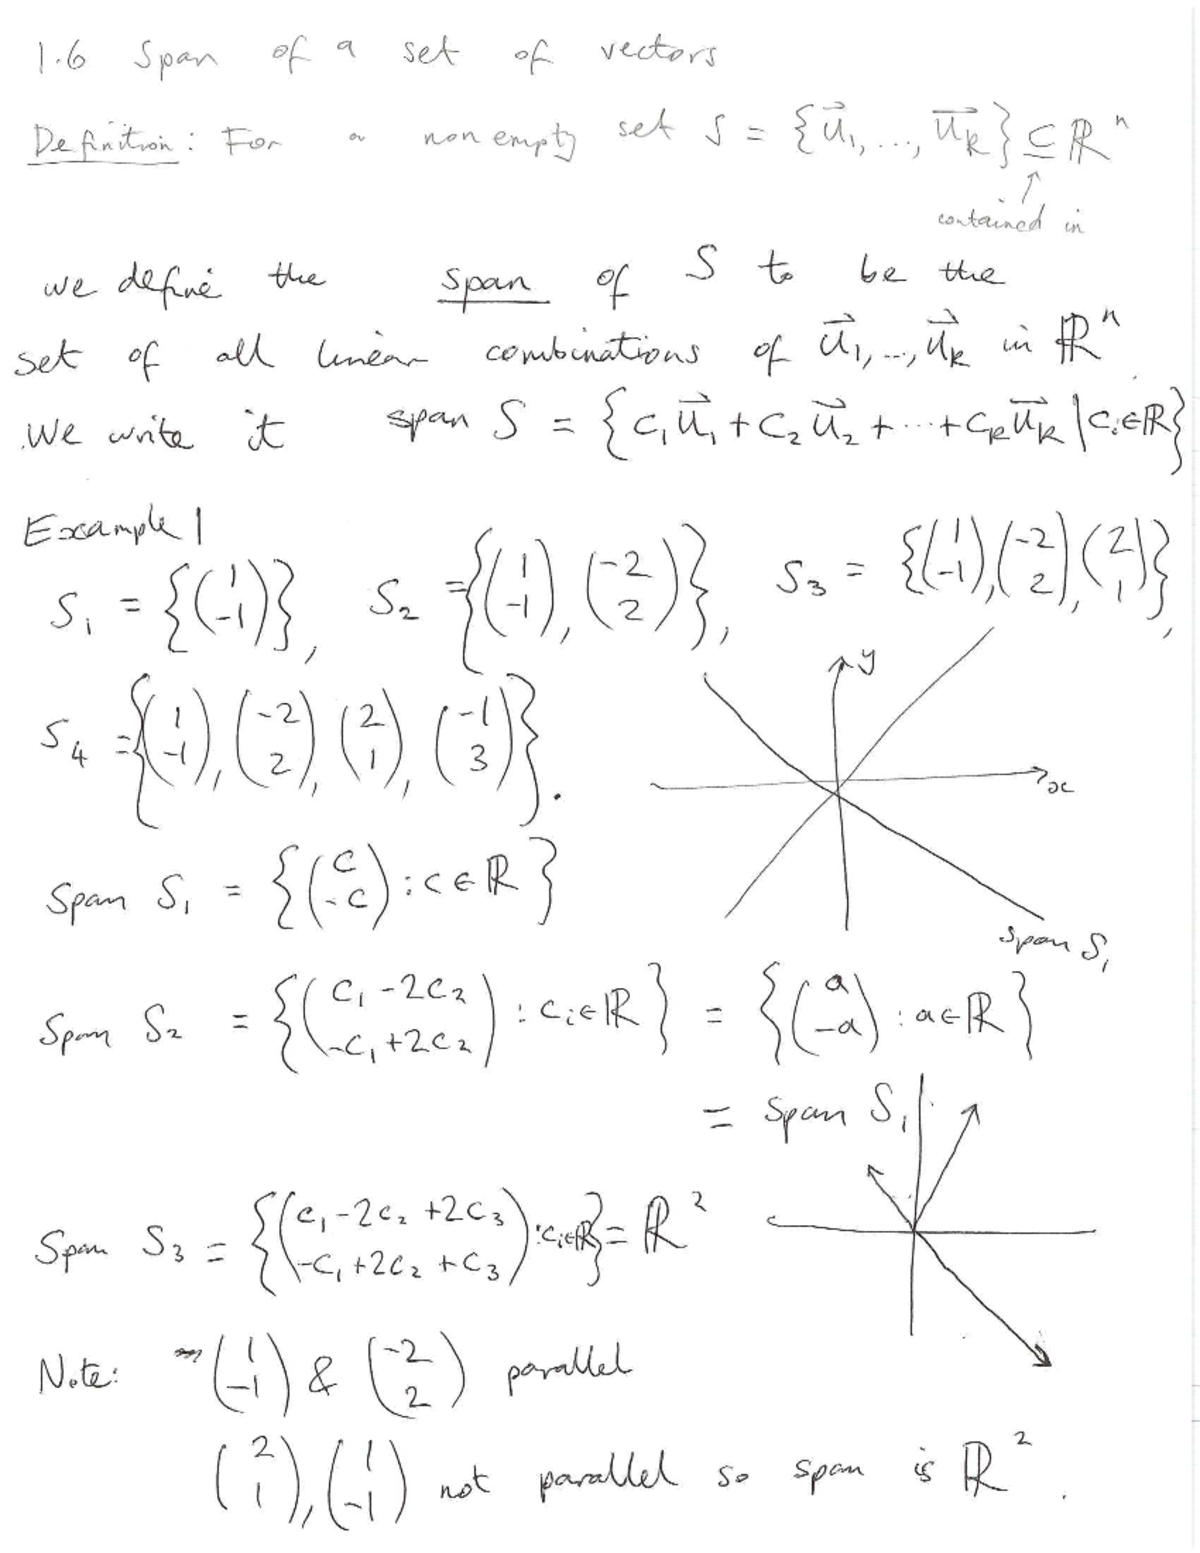 1.6 Span of a set of vectors
Definition: For a nonempty set S = {u⃗₁, ..., u⃗ₖ} ⊆ ℝⁿ
↑
contained in
we define the span of S to be the
set of all linear combinations of u⃗₁, ..., u⃗ₖ in ℝⁿ.
We write it span S = {c₁u⃗₁ + c₂u⃗₂ + ··· + cₖu⃗ₖ | cᵢ ∈ ℝ}
Example 1
S₁ = {(1 -1)}, S₂ = {(1 -1), (-2 2)}, S₃ = {(1 -1), (-2 2), (2 1)},
S₄ = {(1 -1), (-2 2), (2 1), (-1 3)}.
y
x
span S₁
Span S₁ = {(c -c) : c ∈ ℝ}
Span S₂ = {(c₁ - 2c₂ -c₁ + 2c₂) : cᵢ ∈ ℝ} = {(a -a) : a ∈ ℝ}
= Span S₁
Span S₃ = {(c₁ - 2c₂ + 2c₃ -c₁ + 2c₂ + c₃) : cᵢ ∈ ℝ} = ℝ²
Note: (1 -1) & (-2 2) parallel
(2 1), (1 -1) not parallel so span is ℝ².